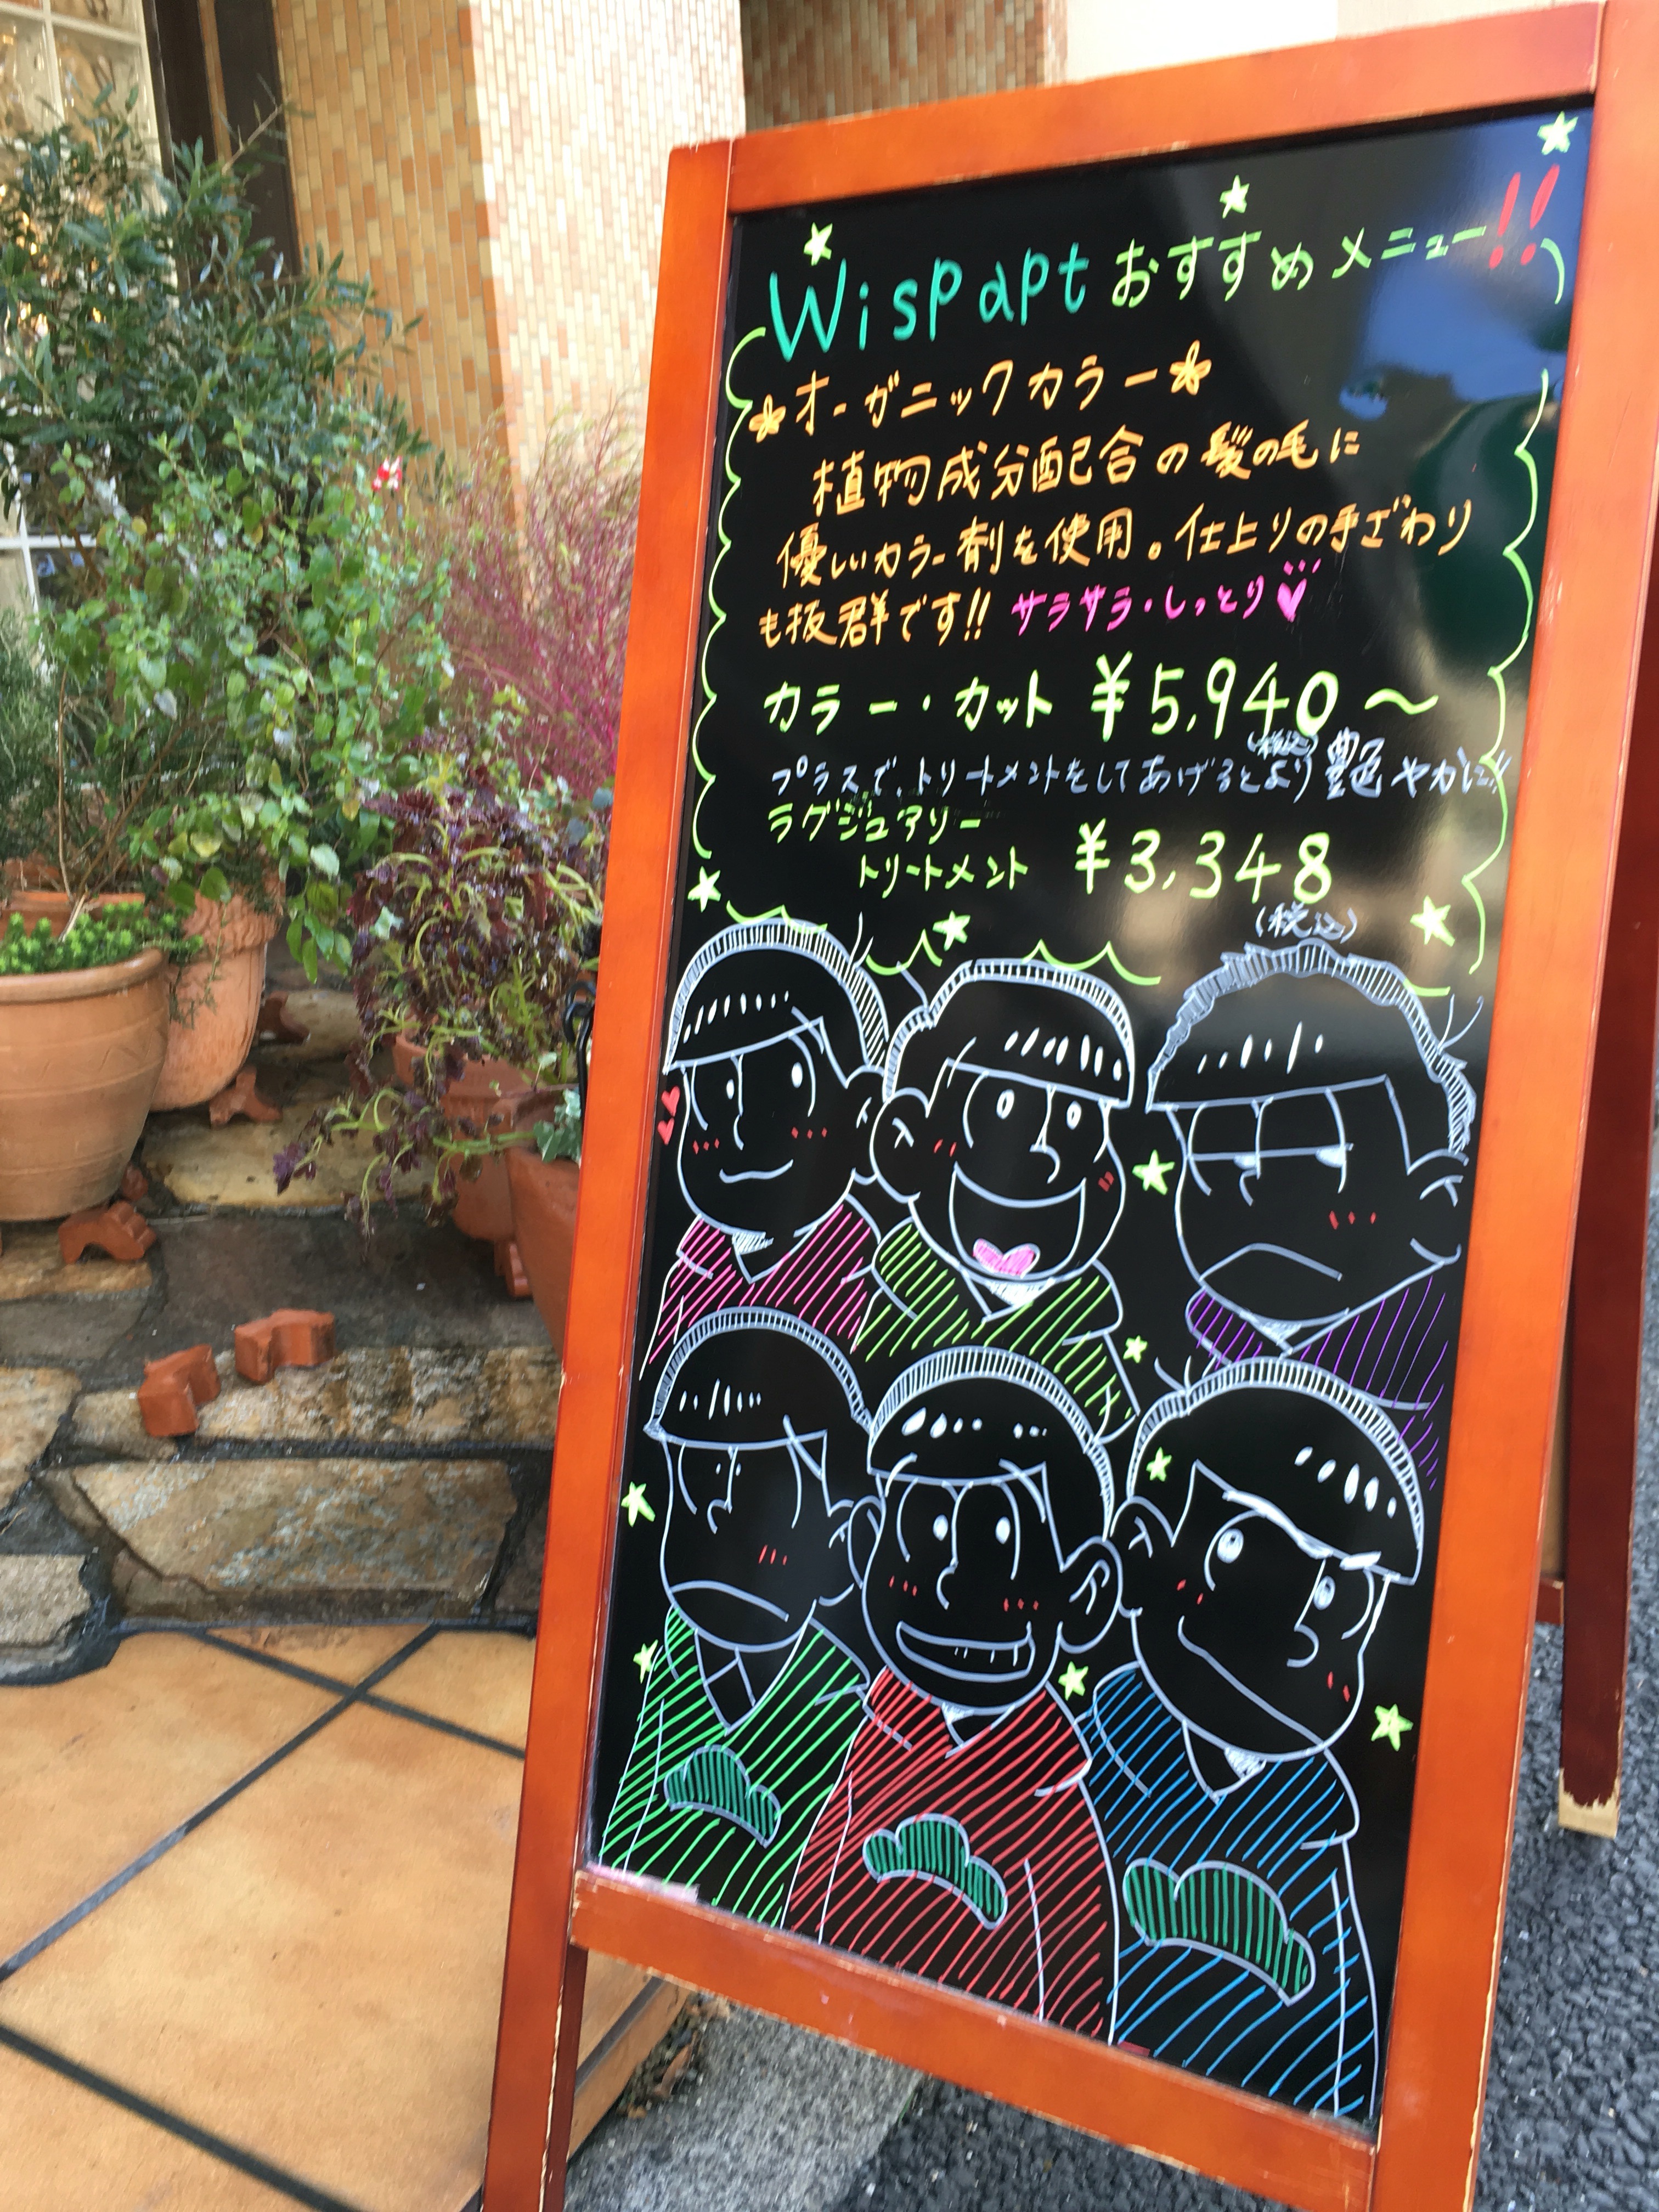 Wisp apt おすすめメニュー!!
オーガニックカラー
植物成分配合の髪の毛に
優しいカラー剤を使用。仕上りの手ざわり
も抜群です!! サラサラ・しっとり♡
カラー・カット ¥5,940〜
(税込)
プラスで、トリートメントをしてあげるとより艶やかに!!
ラグジュアリー
トリートメント ¥3,348
(税込)